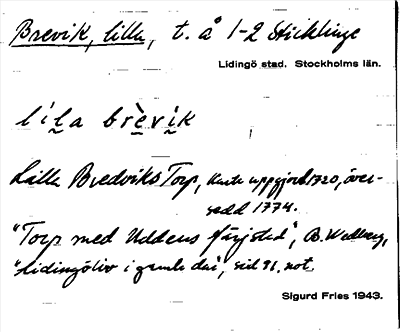 Brevik, lilla, t. å 1-2 Sticklinge
Lidingö stad. Stockholms län.
lila brèvik
Lilla Bredviks Torp, Karta uppgjord 1720, över-
sedd 1774.
"Torp med Uddens färjsted", B. Wedberg,
"Lidingöliv i gamla da'r", sid 91, not.
Sigurd Fries 1943.